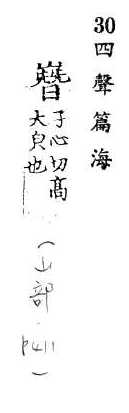 30四聲篇海
嶜
子心切髙
大皃也
(山部.P411)